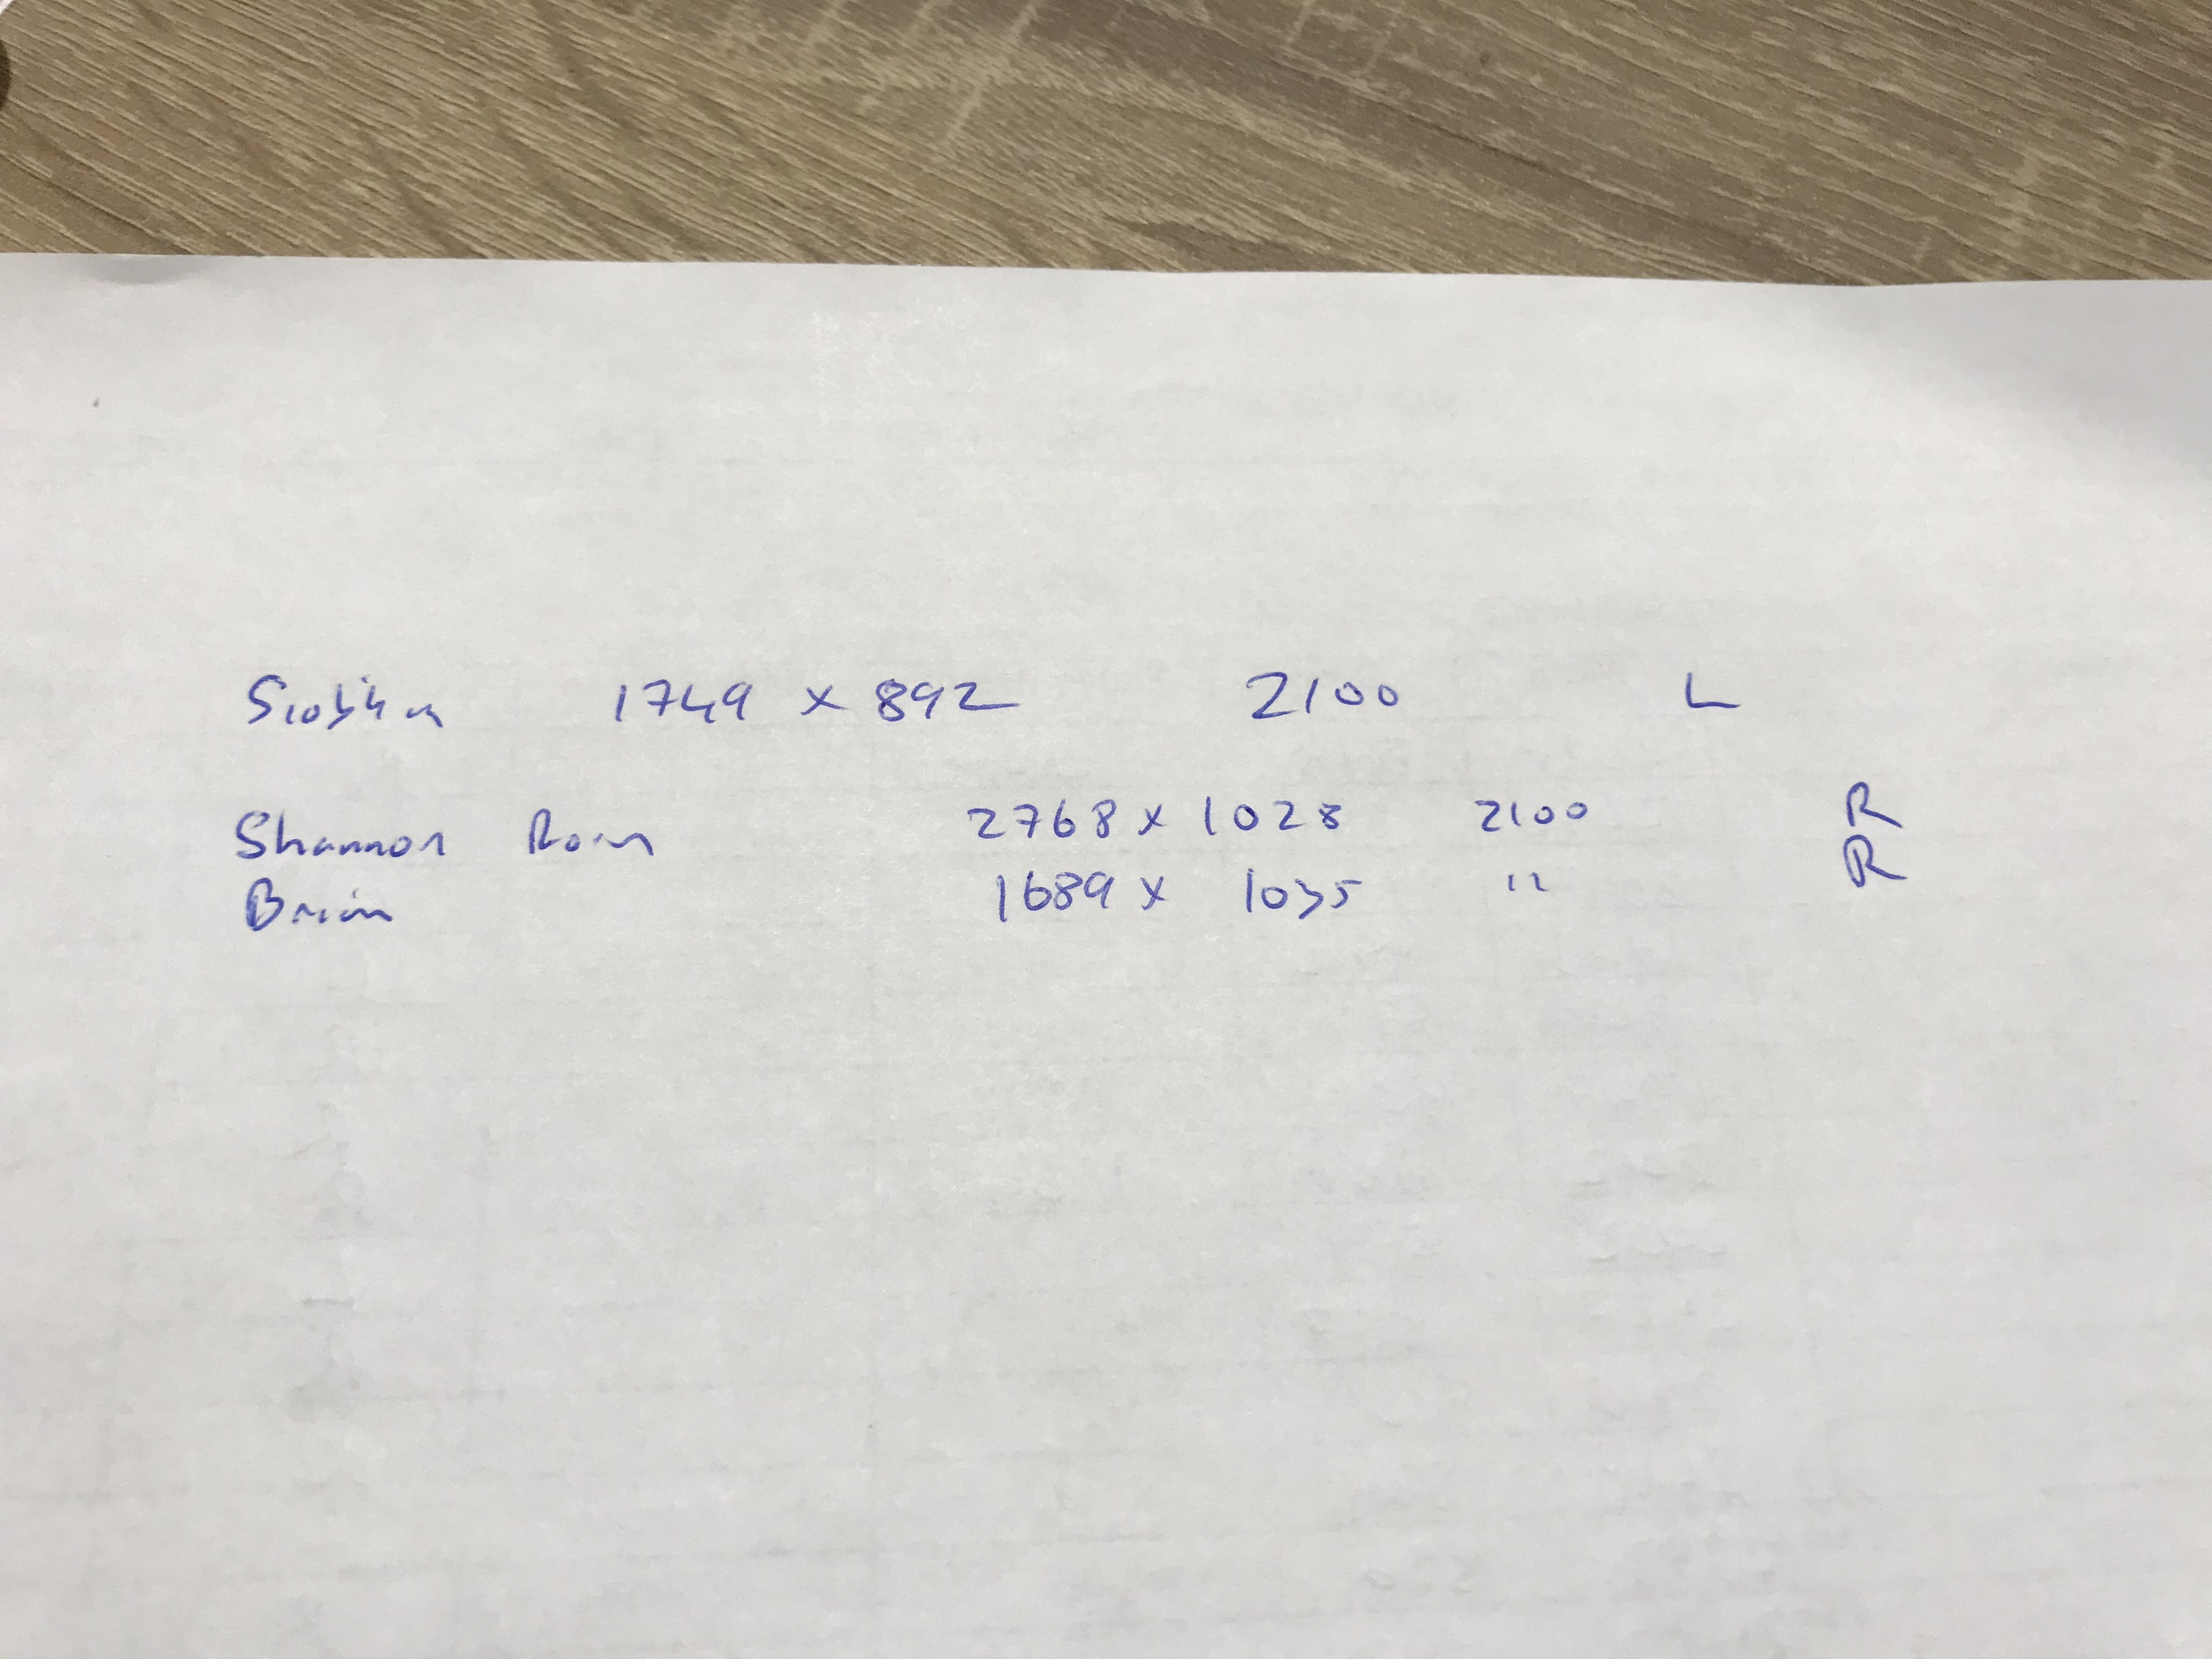 Siobhan 1749 x 892 2100 L
Shannon Room 2768 x 1028 2100 R
Brian 1689 x 1035 " R